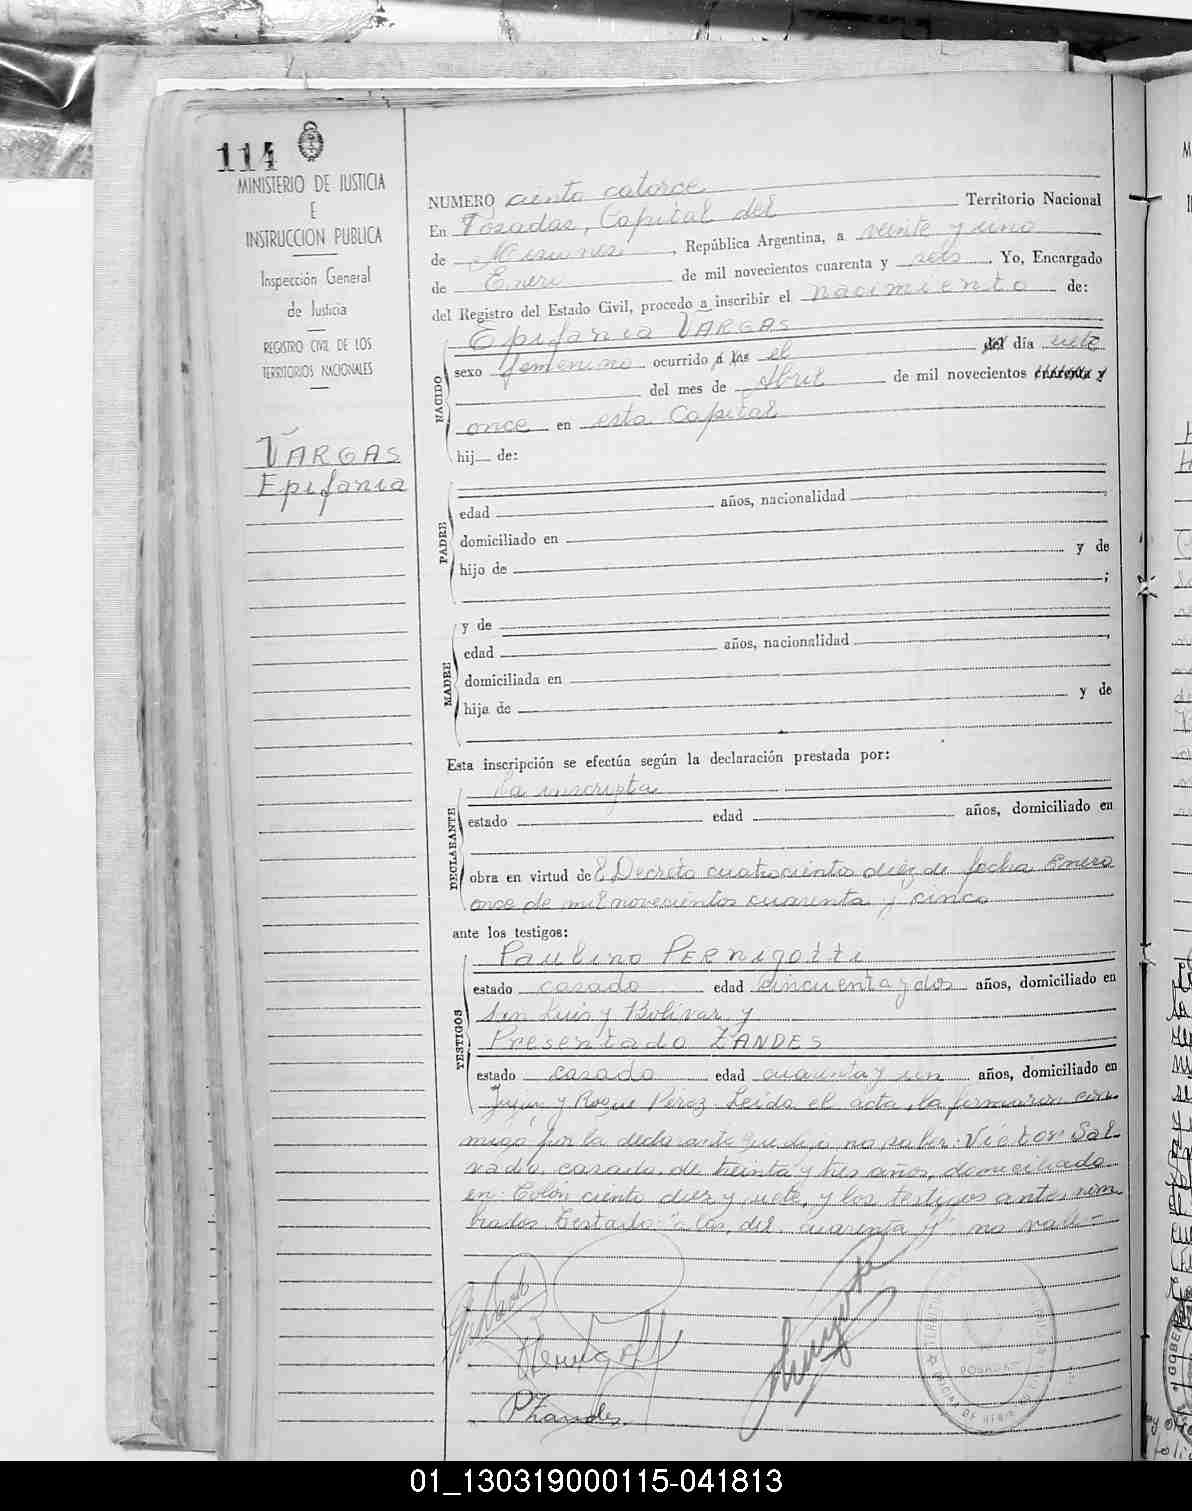 114
MINISTERIO DE JUSTICIA
E
INSTRUCCION PUBLICA
Inspección General
de Justicia
REGISTRO CIVIL DE LOS
TERRITORIOS NACIONALES
VARGAS
Epifania
NUMERO ciento catorce
En Posadas, Capital del Territorio Nacional
de Misiones, República Argentina, a veinte y uno
de Enero de mil novecientos cuarenta y seis. Yo, Encargado
del Registro del Estado Civil, procedo a inscribir el nacimiento de:
NACIDO
Epifania VARGAS
sexo femenino ocurrido a las el del día siete
del mes de Abril de mil novecientos cuarenta y
once en esta Capital
hij de:
PADRE
edad años, nacionalidad
domiciliado en
hijo de y de
;
MADRE
y de
edad años, nacionalidad
domiciliada en
hija de y de
Esta inscripción se efectúa según la declaración prestada por:
DECLARANTE
La inscripta
estado edad años, domiciliado en
obra en virtud del Decreto cuatrocientos diez de fecha Enero
once de mil novecientos cuarenta y cinco
ante los testigos:
TESTIGOS
Paulino PERNIGOTTI
estado casado edad cincuenta y dos años, domiciliado en
San Luis y Bolívar y
Presentado ZANDES
estado casado edad cuarenta y un años, domiciliado en
Jujuy y Roque Pérez. Leída el acta, la firmaron con-
migo por la declarante que dijo no saber: Victor Sal-
vado, casado, de treinta y tres años, domiciliado
en Colón ciento diez y siete, y los testigos antes nom-
brados. Testado: "a las, del, cuarenta y" no vale-
PZandes
POSADAS
01_130319000115-041813